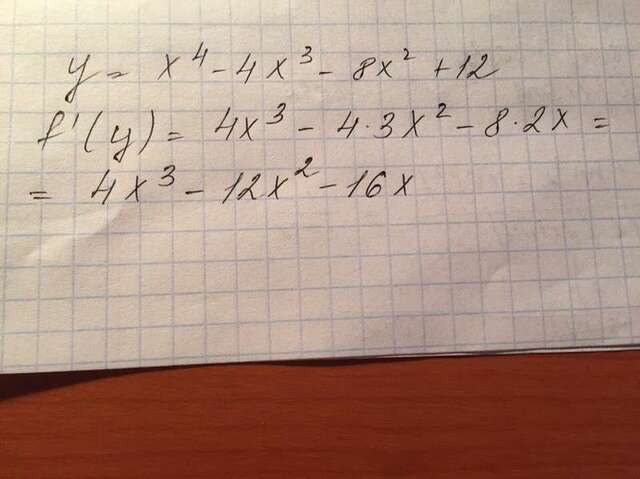 y = x⁴ - 4x³ - 8x² + 12
f'(y) = 4x³ - 4·3x² - 8·2x =
= 4x³ - 12x² - 16x